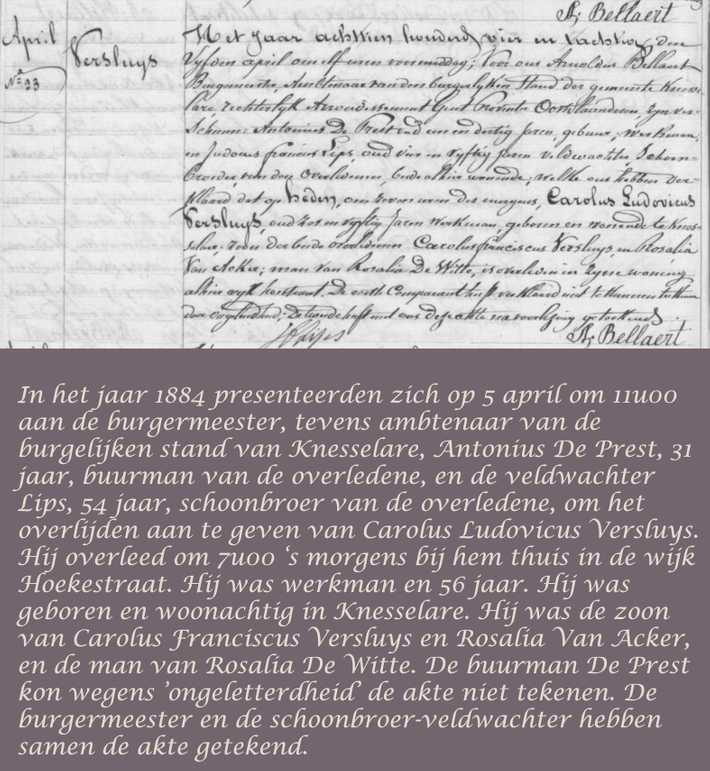 A, Bellaert
April
N° 23
Versluys
Het jaar achttien honderd vier en tachtig den
Vyfden april om elf uren voormiddag; Voor ons Arnoldus Bellaert
Burgmeester, Ambtenaar van den burgerlyken Stand der gemeente Knesse-
lare, rechterlyk Arrondissement Gent Provincie Oostvlaanderen, Zyn ver-
schenen: Antonius De Prest oud een en dertig Jaren, gebuur, werkman,
en Judocus Francies Lips, oud vier en vyftig Jaren Veldwachter, Schoon-
broeder van den Overledenen, beide alhier wonende; welke ons hebben ver-
klaard dat op heden, om zeven uren des morgens, Carolus Ludovicus
Versluys, oud zes en vyftig Jaren Werkman, geboren en wonende te Knes-
selare, zoon der beide overledenen Carolus franciscus Versluys, en Rosalia
Van Acker; man van Rosalia De Witte, is overleden in Zyne woning
alhier wyk hoekstraat. De eerste Comparant heeft verklaard niet te kunnen teekenen
door ongeletterdheid; de tweede heeft met ons deze akte na voorlezing geteekend.
Lips
A, Bellaert
In het jaar 1884 presenteerden zich op 5 april om 11u00
aan de burgermeester, tevens ambtenaar van de
burgelijken stand van Knesselare, Antonius De Prest, 31
jaar, buurman van de overledene, en de veldwachter
Lips, 54 jaar, schoonbroer van de overledene, om het
overlijden aan te geven van Carolus Ludovicus Versluys.
Hij overleed om 7u00 ‘s morgens bij hem thuis in de wijk
Hoekestraat. Hij was werkman en 56 jaar. Hij was
geboren en woonachtig in Knesselare. Hij was de zoon
van Carolus Franciscus Versluys en Rosalia Van Acker,
en de man van Rosalia De Witte. De buurman De Prest
kon wegens 'ongeletterdheid' de akte niet tekenen. De
burgermeester en de schoonbroer-veldwachter hebben
samen de akte getekend.